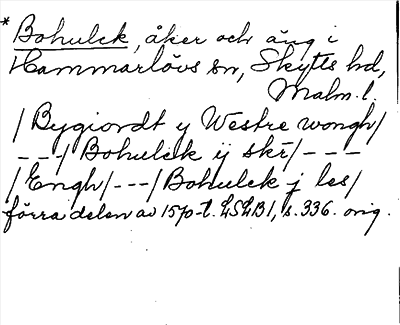 * Bohulck, åker och äng i
Hammarlövs sn, Skytts hd,
Malm. l.
/ Bygiordt y Westre wongh/
---/ Bohulck ij skr̄/---
/ Engh/---/ Bohulck j les/
förra delen av 1570-t. LSLB1, s. 336. orig.